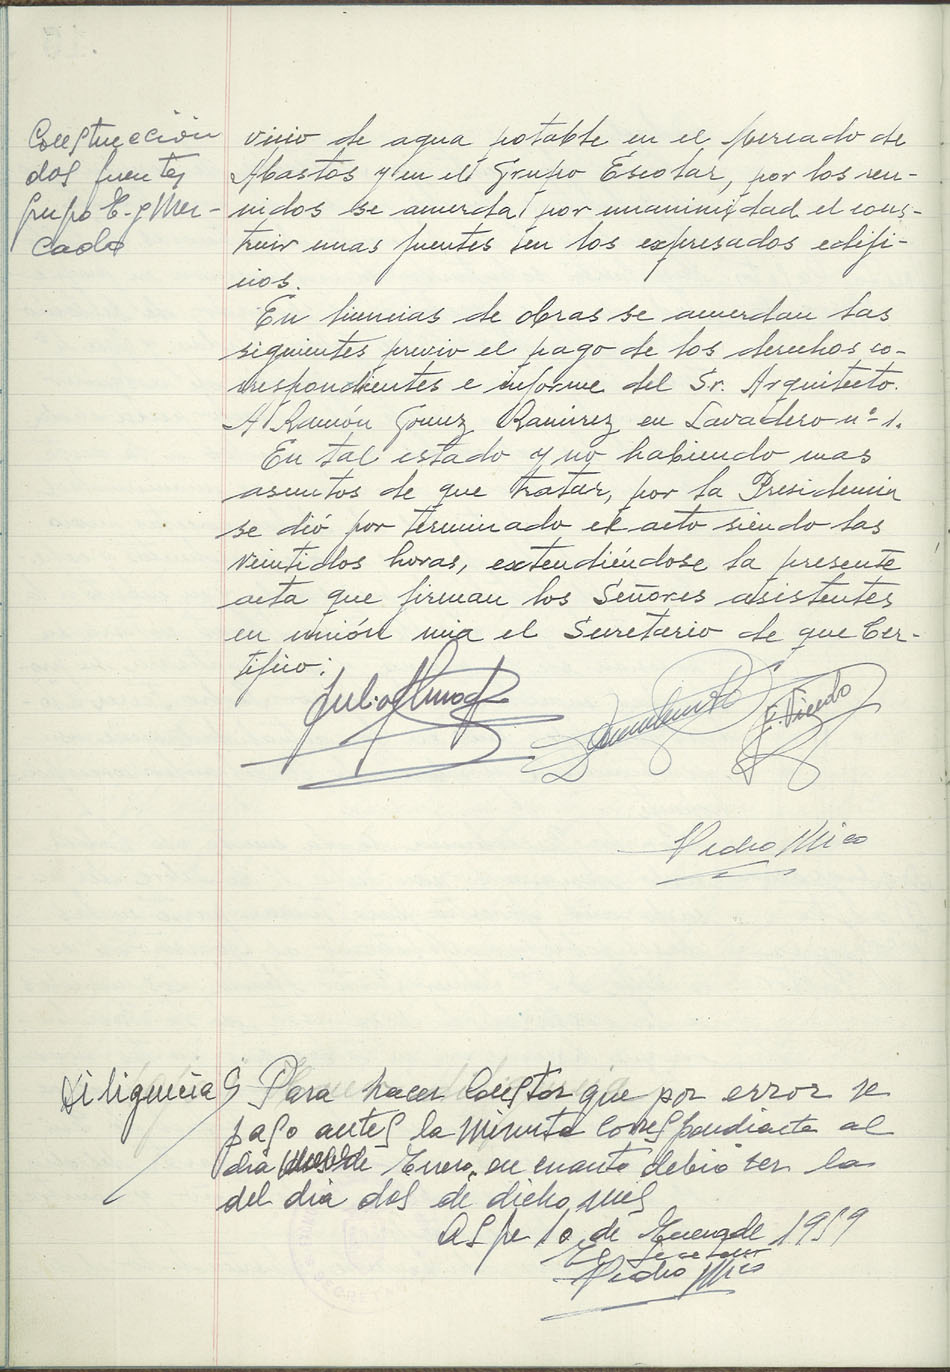 Construcción
dos fuentes
Grupo E. y Mer-
cado
vicio de agua potable en el Mercado de
Abastos y en el Grupo Escolar, por los reu-
nidos se acuerda por unanimidad el cons-
truir unas fuentes en los expresados edifi-
cios.
En licencias de obras se acuerdan las
siguientes previo el pago de los derechos co-
rrespondientes e informe del Sr. Arquitecto.
A Ramón Gomez Ramirez en Lavadero nº 1.
En tal estado y no habiendo mas
asuntos de que tratar, por la Presidencia
se dió por terminado el acto siendo las
veintidos horas, extendiéndose la presente
acta que firman los Señores asistentes
en unión mia el Secretario de que Cer-
tifico:
Julio
E. Vicedo
Pedro Mico
Diligencia
Para hacer constar que por error se
paso antes la minuta correspondiente al
dia de Enero, en cuanto debió ser la
del dia dos de dicho mes
Aspe 10 de Enero de 1959
El Secretario
Pedro Mico